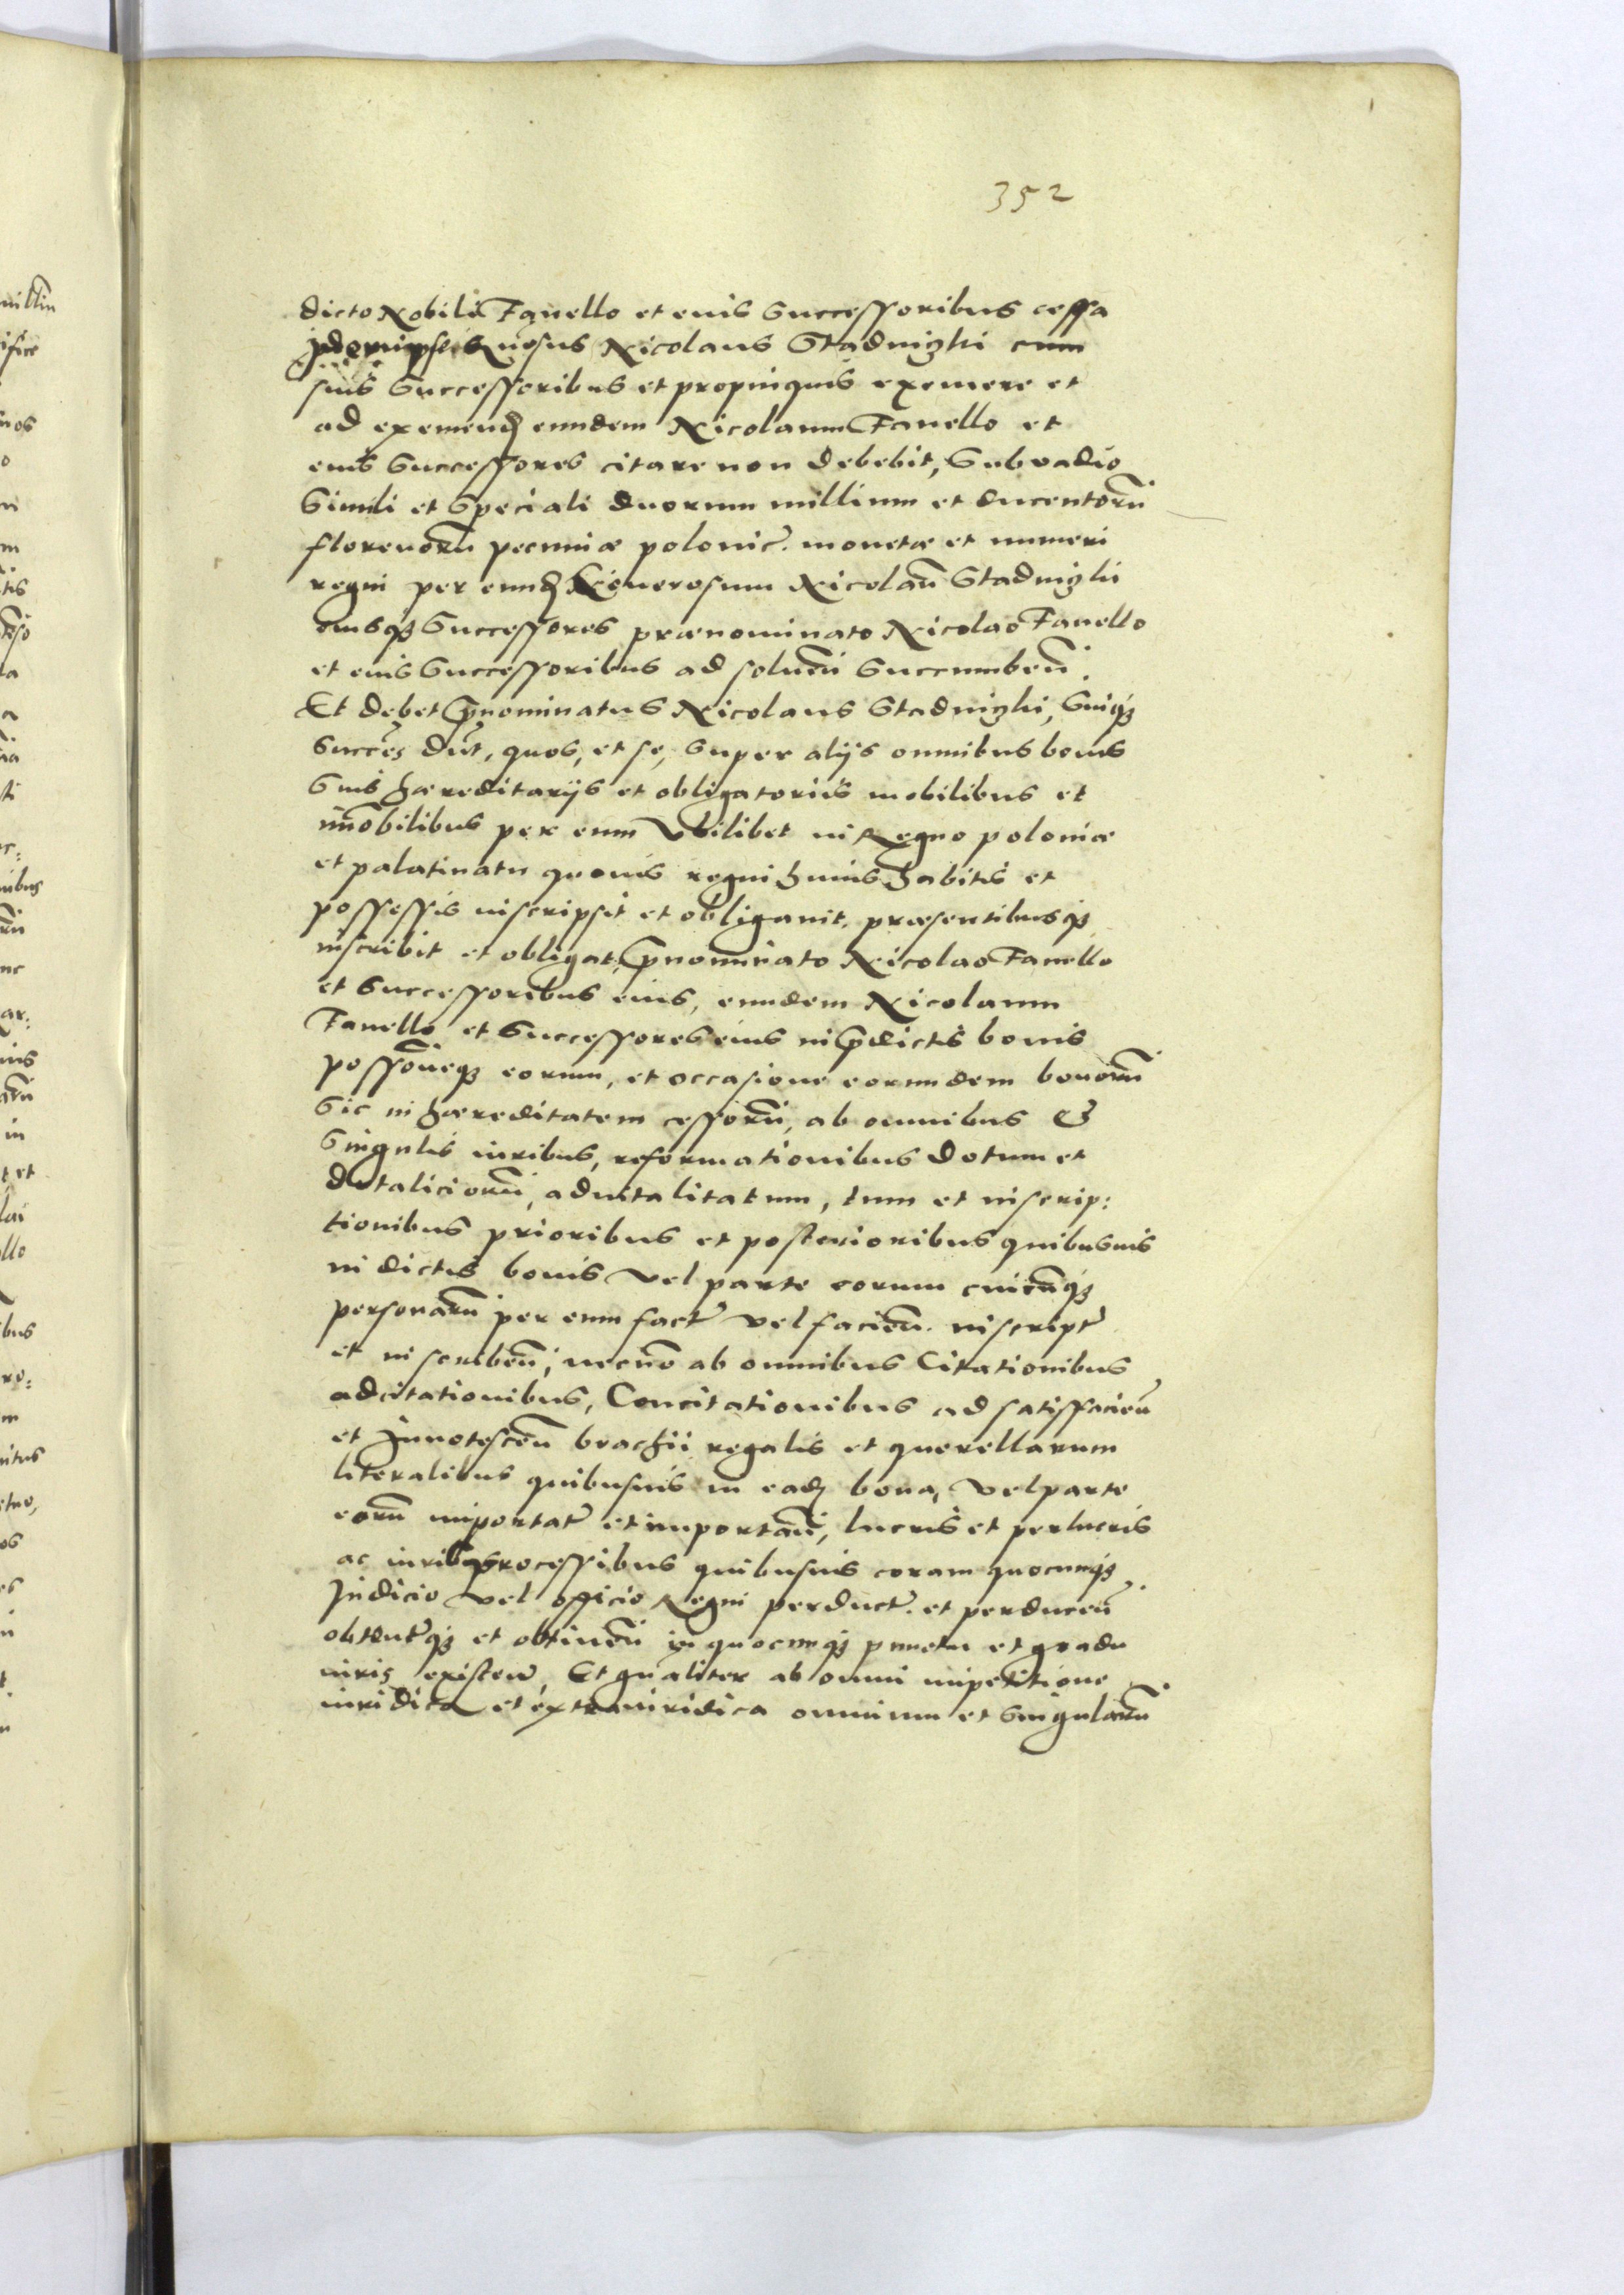 352
dicto Nobili Fanello et eius Successoribus cessa
idem ipse Gnosus Nicolaus Stadnizki cum
suis Successoribus et propinquis eximere et
ad eximend eundem Nicolaum Fanello et
eius Successores citare non debebit, Sub vadio
Simili et Speciali duorum millium et ducentorū
florenorū pecuniæ polonic. monetæ et numeri
regni per eund Generosum Nicolaū Stadnizki
eiusq Successores prænominato Nicolao Fanello
et eius Successoribus ad solueñ Succumbeñ.
Et debet pnominatus Nicolaus Stadnizki, Suiq
Success dūt, quos, et se, super alijs omnibus bonis
Suis hæreditarijs et obligatorijs mobilibus et
im̄obilibus per eum vbilibet in Regno poloniæ
et palatinatu quouis regni huius habitis et
possessis inscripsit et obligauit. præsentibusq
inscribit et obligat, pnominato Nicolao Fanello
et Successoribus eius, eundem Nicolaum
Fanello et Successores eius in pdictis bonis
possōneq eorum, et occasione eorundem bonorū
Sic in hæreditatem cessorū, ab omnibus &
Singulis iuribus, reformationibus dotum et
dotaliciorū, aduitalitatum, tum et inscrip:
tionibus prioribus et posterioribus quibusuis
in dictis bonis vel parte eorum cuicūq
personarū per eum fact vel facieñ. inscript
et inscribeñ, necnō ab omnibus Citationibus
adcitationibus, Concitationibus ad satisfacieñ
et Innotesceñ brachii regalis et querellarum
literalibus quibusuis in ead bona, vel parte
eorū importat et importañ, lucris et perlucris
ac iuribs processibus quibusuis coram quocunq
Iudicio vel officio Regni perduct. et perduceñ
obtentq et obtineñ in quocunq puncto et gradu
iuris existeñ, Et qualiter ab omni impetitione
iuridica et extraiuridica omnium et Singularū